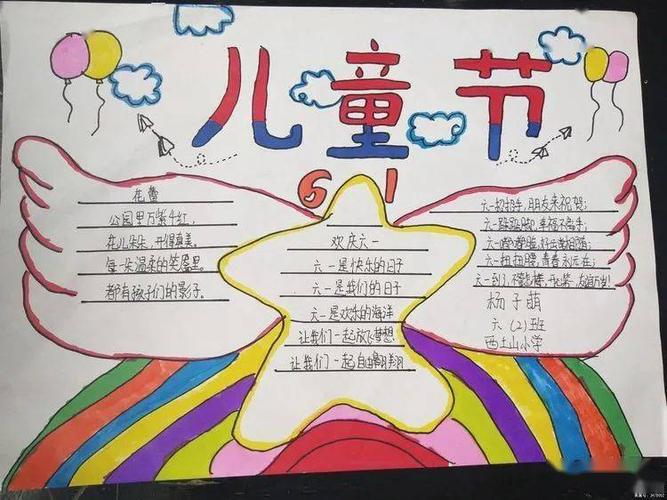 儿童节
6 1
花蕾
公园里万紫千红,
花儿朵朵,开得真美。
每一朵温柔的笑靥里
都有孩子们的影子。
欢庆六一
六一是快乐的日子
六一是我们的日子
六一是欢乐的海洋
让我们一起放飞梦想
让我们一起自由翱翔
六一招招手,朋友来祝贺;
六一跺跺脚,幸福不离手;
六一扭扭腰,青春永远在;
杨子萌
六(2)班
西土山小学